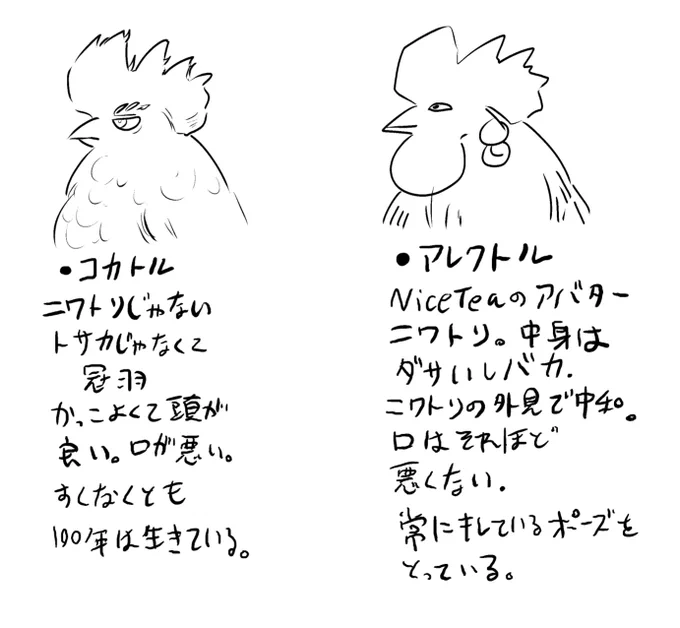 •コカトル
ニワトリじゃない
トサカじゃなくて
冠羽
かっこよくて頭が
良い。口が悪い。
すくなくとも
100年は生きている。
•アレクトル
NiceTeaのアバター
ニワトリ。中身は
ダサいしバカ.
ニワトリの外見で中和。
口はそれほど
悪くない.
常にキレているポーズを
とっている。